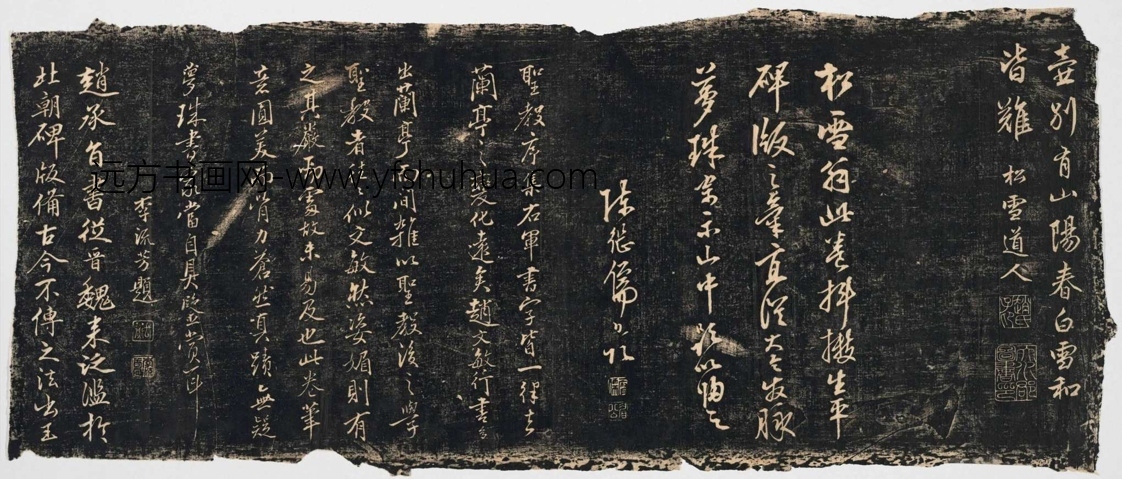 壺别有山陽春白雪和
皆難 松雪道人
松雪翁此卷抨掇生平
碑版之筆直從大令发脉
夢珠宗示山中 以
陳繼儒
聖教序集右軍書字皆一律去
蘭亭之變化遠矣趙文敏行書多
出蘭亭間雜以聖教後之學
聖教者往似文敏然姿媚則有
之其嚴重處故未易及也此卷華
美圓美 骨力蒼然真蹟無疑
夢珠書家當自具賞
李流芳題
趙承旨書從晋魏来泛濫於
北朝碑版備古今不傳之法出王
远方书画网-www.yfshuhua.com